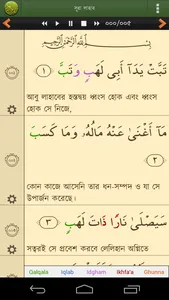 সূরা লাহাব
000/005
بِسْمِ اللَّهِ الرَّحْمَٰنِ الرَّحِيمِ
تَبَّتْ يَدَآ أَبِى لَهَبٍ وَتَبَّ ﴿١﴾
আবু লাহাবের হস্তদ্বয় ধ্বংস হোক এবং ধ্বংস
হোক সে নিজে,
مَآ أَغْنَىٰ عَنْهُ مَالُهُۥ وَمَا كَسَبَ
﴿٢﴾
কোন কাজে আসেনি তার ধন-সম্পদ ও যা সে
উপার্জন করেছে।
سَيَصْلَىٰ نَارًا ذَاتَ لَهَبٍ ﴿٣﴾
সত্বরই সে প্রবেশ করবে লেলিহান অগ্নিতে
Qalqala Iqlab Idgham Ikhfa'a Ghunna